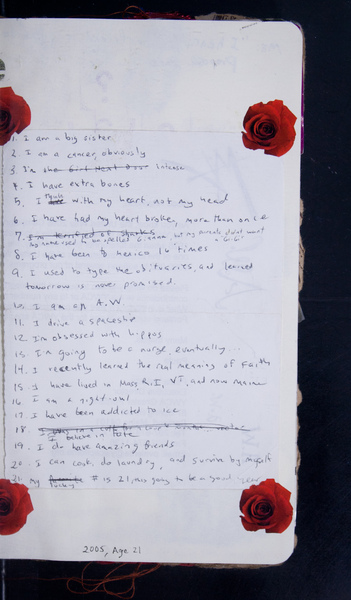 1. I am a big sister
2. I am a cancer, obviously
3. I'm the Girl Next Door Intense
4. I have extra bones
5. I think with my heart, not my head
6. I have had my heart broken, more than once
7. I'm terrified of sharks
My name used to be spelled but my parents didn't want
8. I have been to mexico 16 times
9. I used to type the obituaries, and learned
tomorrow is never promised.
10. I am an A.W.
11. I drive a spaceship
12. I'm obsessed with hippos
13. I'm going to be a nurse, eventually...
14. I recently learned the real meaning of Faith
15. I have lived in Mass, R.I, VT, and now Maine
16 I am a night owl
17. I have been addicted to ice
18.
I believe in fate
19. I do have amazing friends
20. I can cook, do laundry, and survive by myself
21. My lucky # is 21, this going to be a good year
2005, Age 21